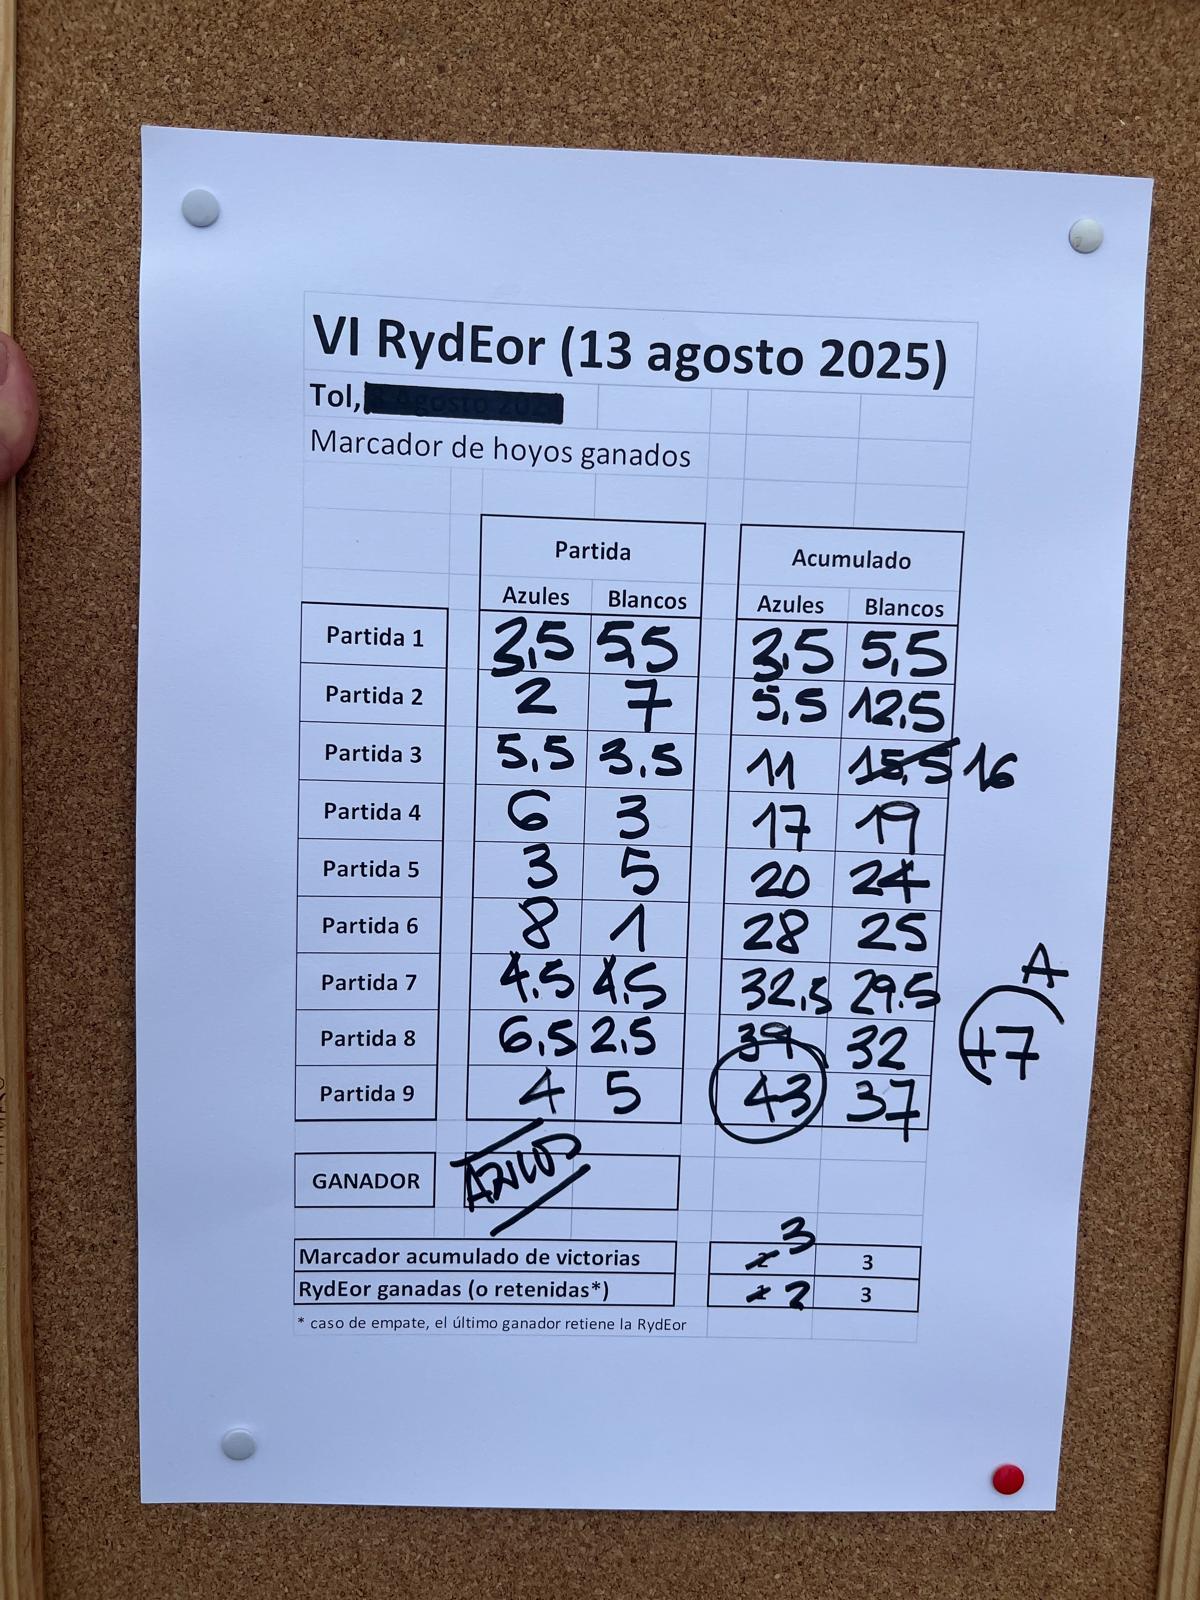 VI RydEor (13 agosto 2025)
Tol,
Marcador de hoyos ganados
Partida Acumulado
Azules Blancos Azules Blancos
Partida 1 3,5 5,5 3,5 5,5
Partida 2 2 7 5,5 12,5
Partida 3 5,5 3,5 11 15,5 16
Partida 4 6 3 17 19
Partida 5 3 5 20 24
Partida 6 8 1 28 25
A
Partida 7 4.5 4,5 32,5 29.5
Partida 8 6,5 2,5 39 32 +7
Partida 9 4 5 43 37
GANADOR AZULES
3
Marcador acumulado de victorias 2 3
RydEor ganadas (o retenidas*) 2 3
* caso de empate, el último ganador retiene la RydEor